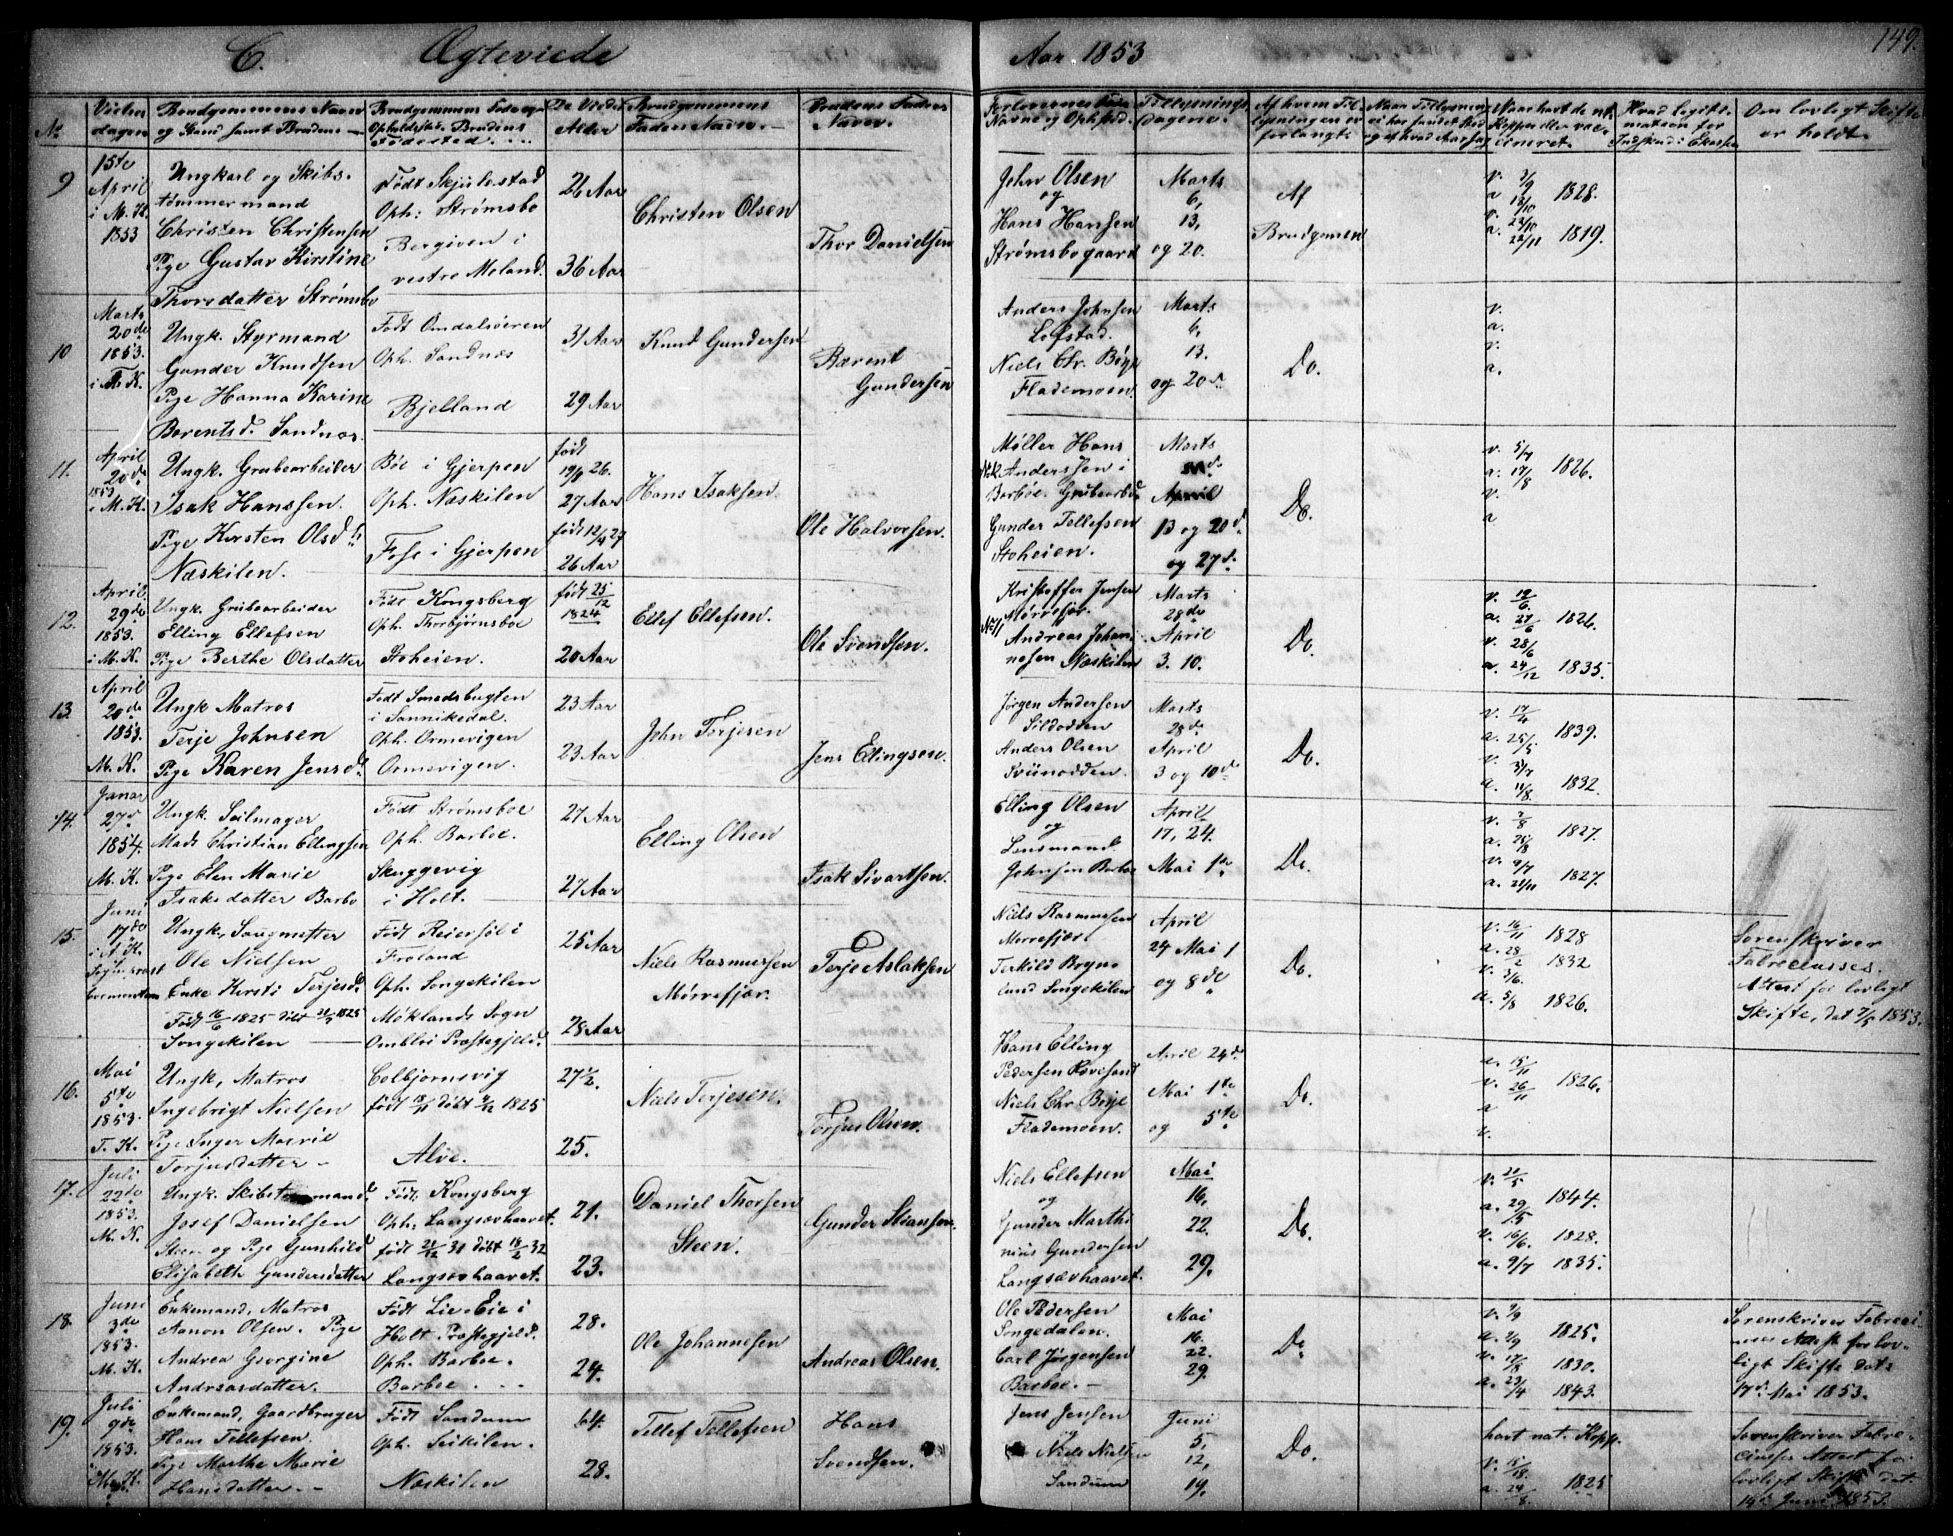 C. Ægteviede
Aar 1853
149.
No
Vielses
dagen
Brudgommens Navn
og Stand samt Brudens
Brudgommens Føde og
Opholdssted. Brudens
Fødested.
De Viedes
Alder
Brudgommens
Faders Navn.
Brudens Faders
Navn.
Forlovernes
Navne og Ophsted.
Tillysnings
dagene.
Af hvem Til-
lysningen er
forlangt.
Naar Tillysnin
ei har fundet Sted
og af hvad Aarsag
Naar havt de nat.
Kopper eller vac-
cineret.
Hvad legiti-
mation for
Indskud i Enkekas
Om lovligt Skifte
er holdt.
9
15de
April
i M. K.
1853
Ungkarl og Skibs-
tømmermand
Christen Christensen
Pige Gustav Kirstine
Thorsdatter Strømsbo
Født Skjulestad
Oph: Strømsbo
Bergiven i
vestre Moland.
26 Aar
36 Aar
Christen Olsen
Thor Danielsen
John Olsen
og
Hans Hansen
Strømsbogaard
Marts
6,
13,
og 20.
Af
Brudgomen
v. 3/9
a 13/10 1828.
v. 22/10
a. 22/11 1819.
10
Marts
20de
1853.
i T. K.
Ungk. Styrmand
Gunder Knudsen
Pige Hanna Karine
Berentsd. Sandnæs.
Født Omdalsøeren
Oph. Sandnæs
Bjelland
31 Aar
29 Aar
Knud Gundersen
Bærent
Gundersen
Anders Johnsen
Løfstad.
Niels Chr. Bøye
Flademoen.
Marts
6,
13.
og 20d.
Do.
v.
a.
v.
a.
11.
April
20de
1853
i M. K.
Ungk. Grubearbeider
Isak Hanssen.
Pige Kirsten Olsd.
Næskilen.
Bøe i Gjerpen
Oph. Næskilen
Fose i Gjerpen
født
19/9 26.
27 Aar
født 12/4 27
26 Aar
Hans Isaksen.
Ole Halvorsen.
Møller Hans
Anderssen i
Barboe. Grubearbd.
Gunder Tellefsen
Stoheien.
Marts
April
13 og 20d.
og 27d.
Do.
v. 5/7
a. 17/8 1826.
v.
a
12.
April
29de
1853.
i M. K.
Ungk. Grubearbeider
Elling Ellefsen
Pige Berthe Olsdatter
Født Kongsberg
Oph. Thorbjørnsboe
Stoheien.
født 25/12
1824
20 Aar
Ellef Ellefsen.
Ole Svendsen.
Kristoffer Jensen
Mørrefjær.
Andreas Johan-
nesen Næskilen
Marts
28de
April
3. 10.
Do.
v. 19/6.
a. 27/6 1826.
v. 28/6
a. 24/12 1835.
13.
April
20de
1853.
M. K.
Ungk Matros
Terje Johnsen
Pige Karen Jensd.
Født Smedsbugten
i Sannikedal.
Oph. Ormevigen
Ormevigen.
23 Aar
23 Aar
John Terjesen
Jens Ellingsen.
Jørgen Andersen
Sildodden
Anders Olsen
Sviinodden.
Marts
28d.
April
3 og 10d.
Do.
v. 17/4
a. 25/5 1839.
v. 3/7
a. 11/8. 1832.
14.
Januar
27d
1854.
M. K.
Ungk. Seilmager
Mads Christian Ellingsen
Pige Elen Marie
Isaksdatter Barbo
Født Strømsboe
Oph. Barboe.
Skuggevig
i Holt.
27 Aar
27 Aar
Elling Olsen
Isak Sivartsen.
Elling Olsen
og
Lensmand
Johnsen Barbo
April
17, 24.
Mai 1ste
Do.
v. 7/8
a. 21/8 1827.
v. 9/7
a. 21/11 1827.
15.
Juni
17de
Ungk, Saugmester
Ole Nielsen
Enke Kirsti Terjesd.
Født 16/6 1825 døbt 21/7 1825
Songekilen
Født Reiersøl i
Froland
Oph. Songekilen
Møklands Sogn
Ombli Præstegjeld.
25 Aar
28 Aar
Niels Rasmussen
Mørrefjær.
Terje Aslaksen
Niels Rasmussen
Mørrefjær.
Terkild Bogns
lund Songekilen
April
24 Mai 1
og 8de
Do.
v. 16/11 1828
a. 28/2 1832
v. 3/6.
a. 5/8 1826.
Sorenskriver
Fabreciusses.
Attest for lovligt
Skifte, dat 7/5 1853.
16.
Mai
5te
1853.
T. K.
Ungk, Matros
Ingebrigt Nielsen
Pige Inger Marie
Torjusdatter
Colbjørnsvig
født 18/11 døbt 4/12 1825
Alve.
27 1/2.
25.
Niels Terjesen.
Torjus Olsen.
Hans Elling
Pedersen Hovesand
Niels Chr Bøye
Flademoen.
April 24d.
Mai 1ste
og 5te
Do.
a. 15/11
v. 26/11 1826.
a
v.
17.
Juli
22de
1853.
M. K.
Ungk. Skibstømmermand
Josef Danielsen
Steen og Pige Gunhild
Elisabeth Gundersdatter
Født Kongsberg
Oph: Langsævhaavet.
født 21/12 31 døbt 18/2 32
Langsævhaavet.
21.
23.
Daniel Thorsen
Steen.
Gunder Stiansen.
Niels Ellefsen
og
Gunder Marthi
nius Gundersen
Langsævhaavet.
Mai
16,
22.
29.
Do.
v. 21/5
a. 29/5 1844.
v. 16/6. 1828.
a. 9/7 1835.
18.
Juni
3de
1853.
M. K.
Enkemand, Matros
Aanon Olsen. Pige
Andrea Georgine
Andreasdatter.
Født Lie-Eie i
Holt Præstegjeld.
Oph. Barboe.
Barboe
28.
24.
Ole Johannesen
Andreas Olsen.
Ole Pedersen
Songedalen.
Carl Jørgensen
Barboe.
Mai
16.
22.
29.
Do
v. 9/9
a. 9/9 1825.
v. 17/8 1830.
a. 23/4 1843.
Sorenskriver Fabreci-
uses Attest for lov-
ligt Skifte dat.
17d. Mai 1853.
19.
Juli
9de
1853.
M. K.
Enkemand, Gaardbruger
Hans Tellefsen.
Pige Marthe Marie
Hansdatter
Født Sandum
Oph. Seikilen.
Næskilen
64.
28.
Tellef Tellefsen
Hans
Svendsen.
Jens Jensen
og
Niels Nielsen
Sandum
Juni
5,
12,
19.
Do.
havt nat. Kopp.
v. 15/18.
a. 24/8. 1825
Sorenskriver Fabre-
ciuses Attest for
lovligt Skifte dat.
14d. Juni 1853.